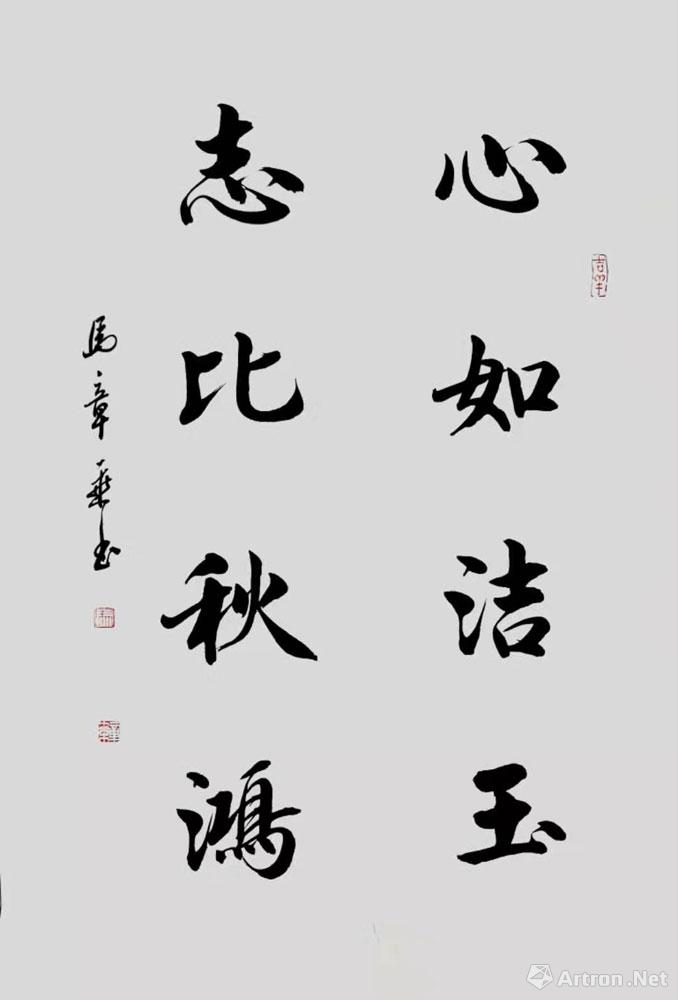 心如洁玉
志比秋鸿
馬章乘书
Artron.Net